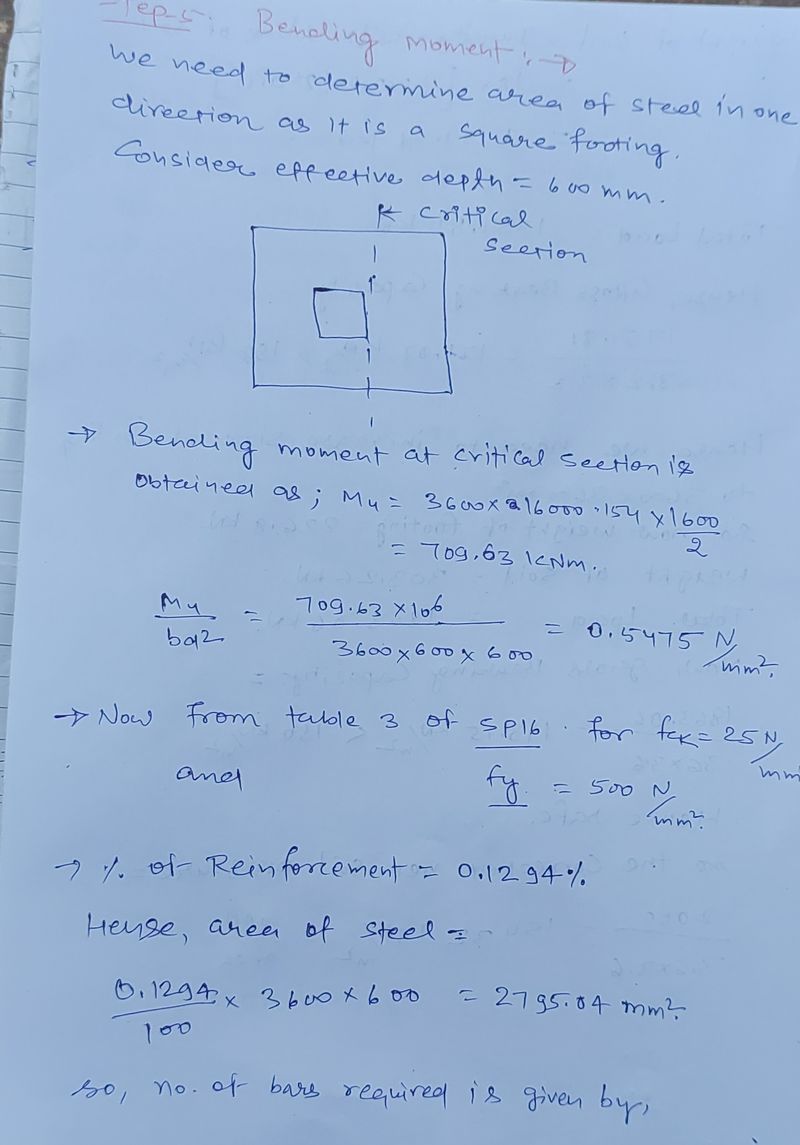 Step-5: Bending moment: →
We need to determine area of steel in one
direction as it is a square footing.
Consider effective depth = 600 mm.
Critical
Section
→ Bending moment at critical section is
obtained as; Mu = 3600 × 1600 × 0.154 × 1600/2
= 709.63 kNm.
Mu/bd2 = 709.63 × 106/3600 × 600 × 600 = 0.5475 N/mm2.
→ Now from table 3 of SP16 for fck = 25 N/mm
and fy = 500 N/mm2.
→ % of Reinforcement = 0.1294%
Hense, area of steel =
0.1294/100 × 3600 × 600 = 2795.04 mm2.
so, no. of bars required is given by,